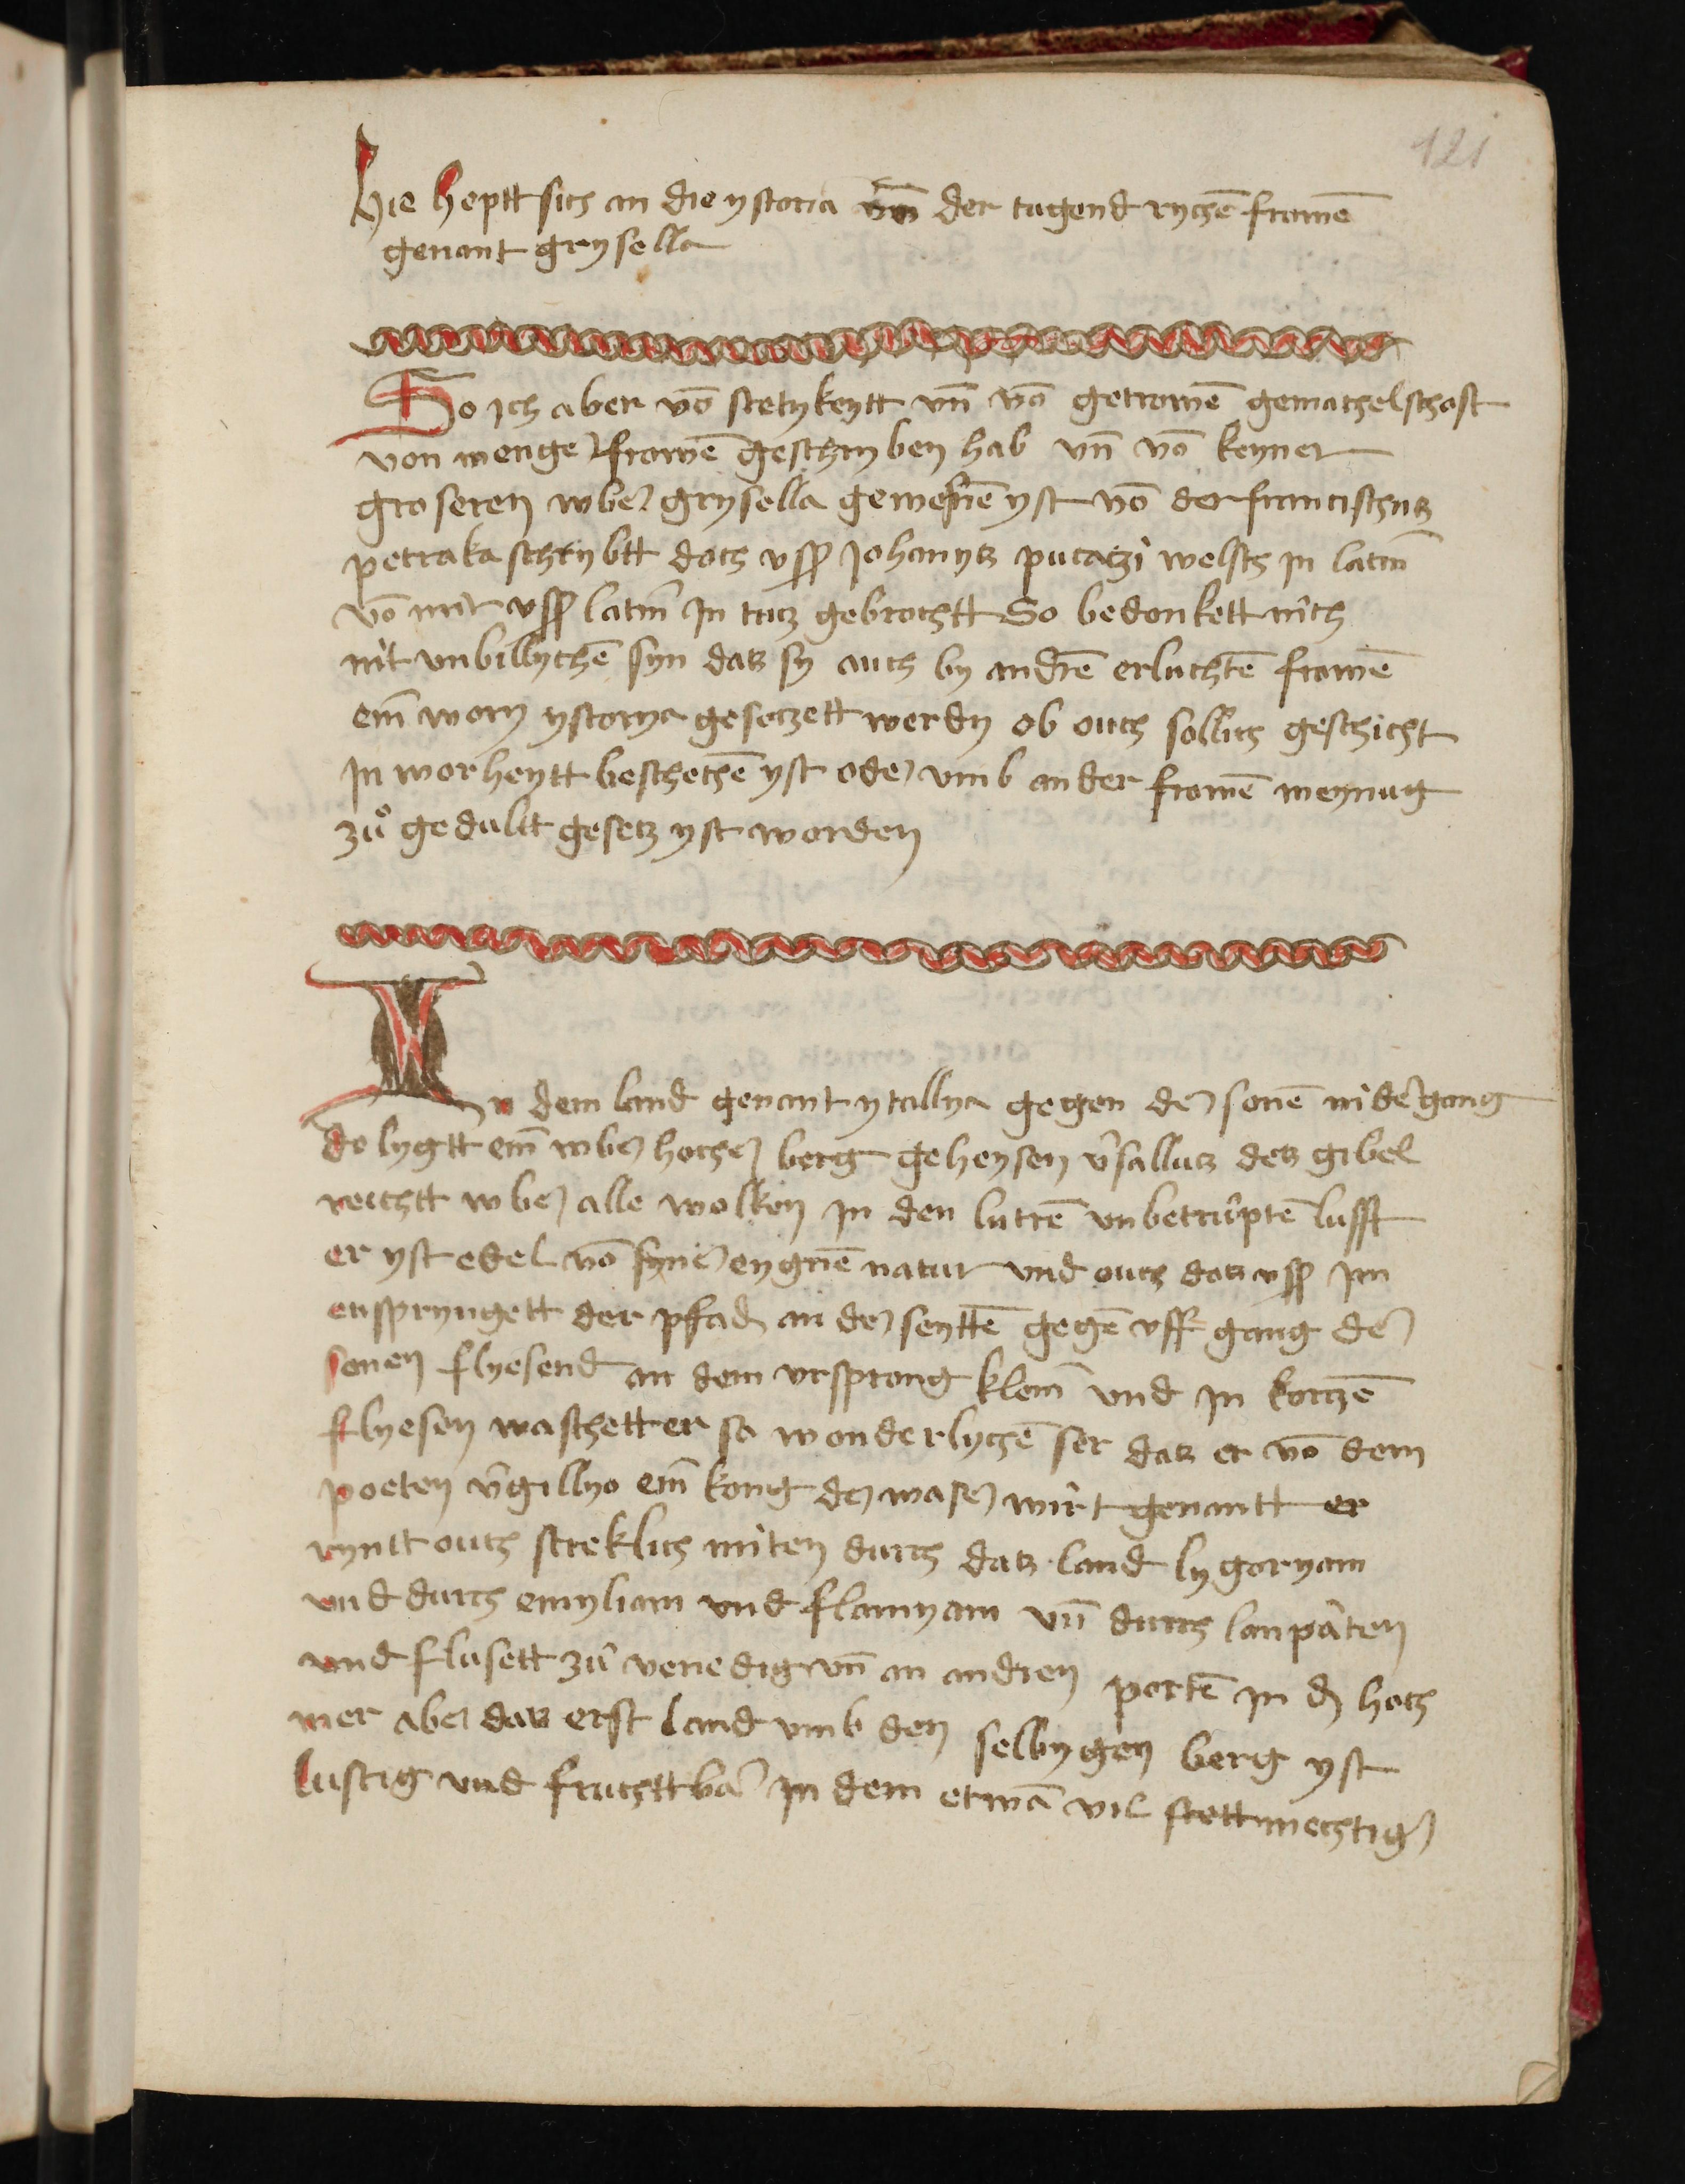 121
Hie heptt sich an die ystoria vō der tugend rychē frowē
genant grysella
So ich aber vō stetykeytt vn̄ vō getrowē gemachelschaft
von menger frowē geschryben hab vn̄ vō keyner
groseren wber grysella gewesē yst vō der francischus
petraka schrybtt doch vß Johanys pucatzi welsch in latin̄
vō mir vß latin̄ In tutz gebrochtt So bedonkett mich
nit vnbillychē syn das sy auch by andrē erluchtē frowē
ein̄ wory ystorya gesetzett werdn ob ouch sollich geschicht
In worheytt beschechē yst oder vmb ander frowē meynug
zů gedultt gesetz yst worden
In dem land genant ytallya gegen der sonē nidergang
do lygtt ein̄ wber hocher berg geheysen v̄sallus des gibel
reichtt wber alle wolken in den lutrē vnbetrůptē lufft
er yst edel vō syner eygnē natur vnd ouch das vß im
enspryngett der pfad an der seyttē gegē vff gang der
sonen flyesend an dem vrsprong klein̄ vnd in kortzē
flyesen waschett er so wonderlychē ser das er vō dem
poeten v̄gillyo ein̄ kong der waser wirt genantt er
ryntt ouch streklich miten durch das land lygoryam
vnd durch emyliam vnd flamyam vn̄ durch lanparten
vnd flusett zů venedig vn̄ an andren portē in d̄ hoch
mer aber das erst land vmb den selbygen berg yst
lustig vnd fruchttbar in dem etwā vil stett mechtiger